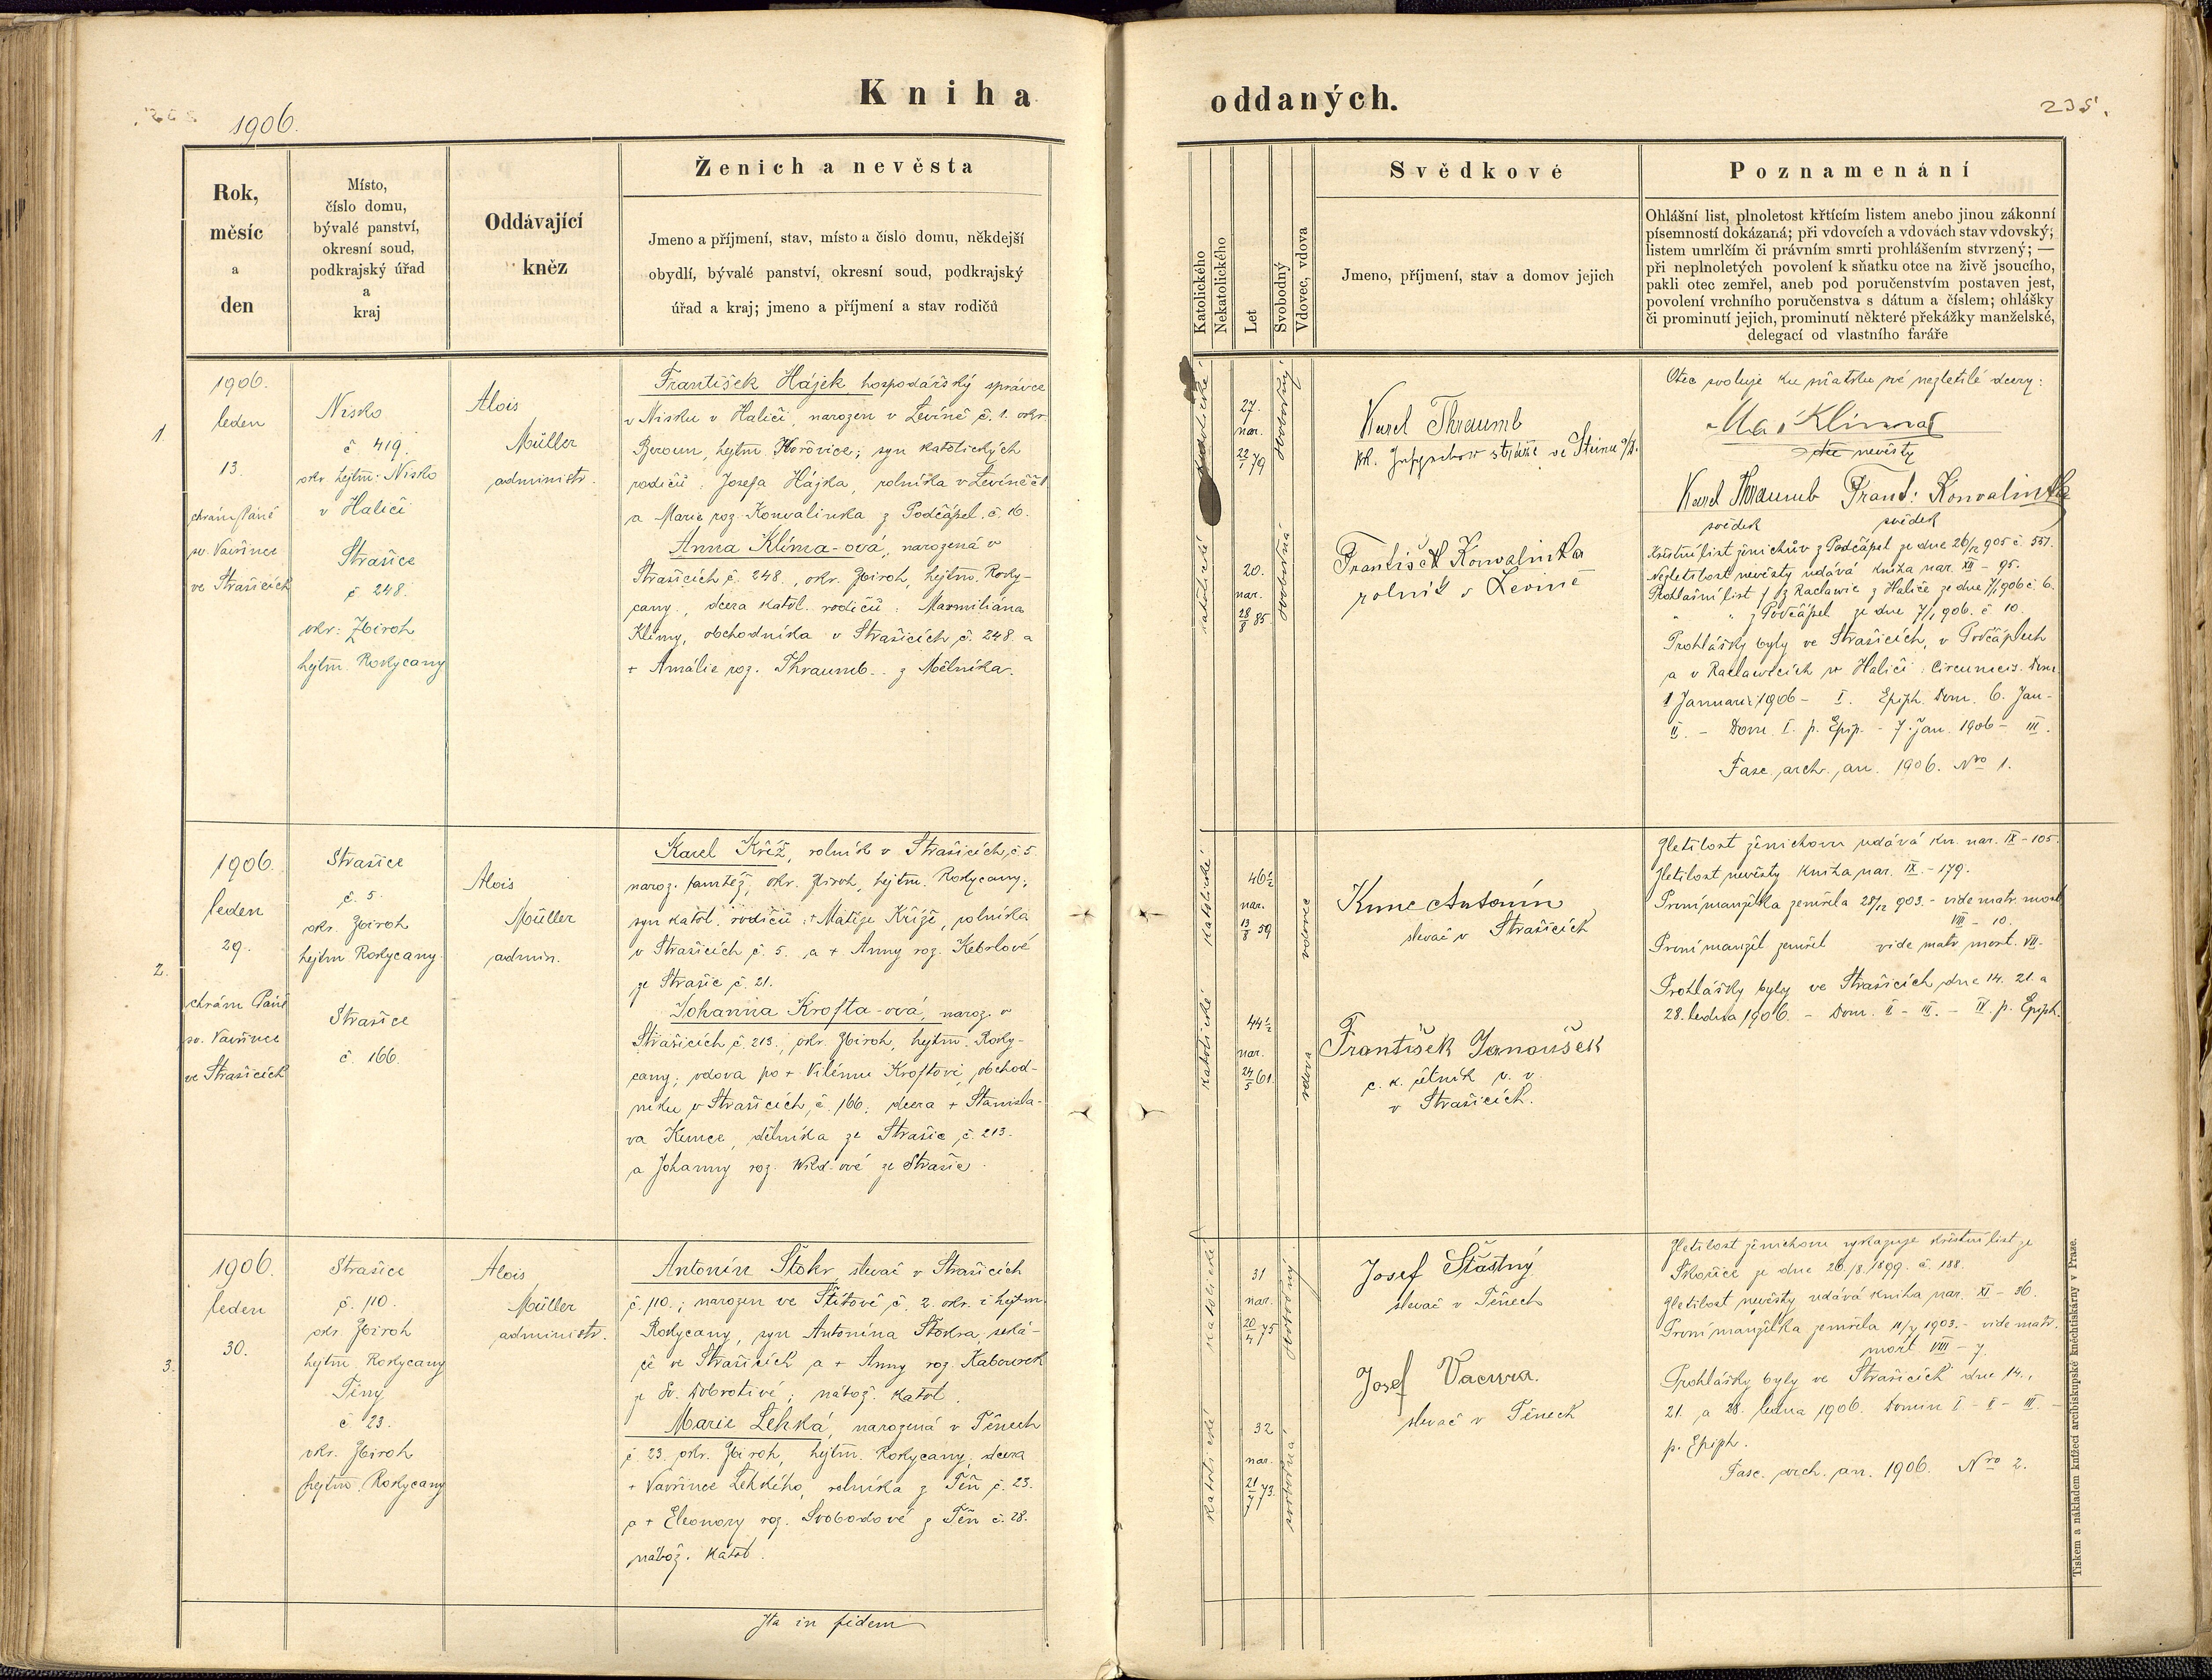 Kniha
oddaných.
1906.
235.
Rok,
měsíc
a
den
Místo,
číslo domu,
bývalé panství,
okresní soud,
podkrajský úřad
a
kraj
Oddávající
kněz
Ženich a nevěsta
Jmeno a příjmení, stav, místo a číslo domu, někdejší
obydlí, bývalé panství, okresní soud, podkrajský
úřad a kraj; jmeno a příjmení a stav rodičů
Katolického
Nekatolického
Let
Svobodný
Vdovec, vdova
Svědkové
Jmeno, příjmení, stav a domov jejich
Poznamenání
Ohlášní list, plnoletost křtícím listem anebo jinou zákonní
písemností dokázaná; při vdovcích a vdovách stav vdovský;
listem umrlčím či právním smrti prohlášením stvrzený; —
při neplnoletých povolení k sňatku otce na živě jsoucího,
pakli otec zemřel, aneb pod poručenstvím postaven jest,
povolení vrchního poručenstva s dátum a číslem; ohlášky
či prominutí jejich, prominutí některé překážky manželské,
delegací od vlastního faráře
1.
1906.
leden
13.
chrám Páně
sv. Vavřince
ve Strašicích
Nisko
č 419.
okr. hejtm: Nisko
v Haliči
Strašice
č 248.
okr: Zbiroh
hejtm. Rokycany
Alois
Müller
administr.
František Hájek, hospodářský správce
v Nisku v Haliči, narozen v Levíně č. 1. okr
Beroun, hejtm Hořovice; syn katolických
rodičů: Josefa Hájka, rolníka v Levíně č 1
a Marie roz. Konvalinka z Podčápel č. 16.
Anna Klíma-ová, narozená v
Strašicích č. 248., okr. Zbiroh, hejtm. Roky-
cany., dcera katol. rodičů: Maxmiliána
Klímy, obchodníka v Strašicích č. 248. a
+ Amálie roz. Thraumb.. z Mělníka.
katolické
27.
nar.
22/1 79
svobodný
katolické
20.
nar.
28/8 85
svobodná
Karel Thraumb
František Konvalinka
rolník v Levíně
Otec svoluje ku sňatku své nezletilé dcery:
Klima
otec nevěsty
Karel Thraumb Frant: Konvalinka
svědek svědek
Křestní list ženichův z Podčápel ze dne 26/12 905 č. 551.
Nezletilost nevěsty udává kniha nar. XII - 95.
Prohlašní list z Raclawic z Haliče ze dne 7/1 906 č. 6.
" " z Podčápel ze dne 7/1 906. č 10.
Prohlášky byly ve Strašicích, v Podčáplech
a v Raclawicích v Haliči: Circumcis. Dom.
1 Januarii 1906 - I. Epiph. Dom. 6. Jan-
II. - Dom. I. p. Epip. - 7. Jan. 1906 - III.
Fasc. arch. an. 1906. Nro 1.
2.
1906.
leden
29.
chrám Páně
sv. Vavřince
ve Strašicích
Strašice
č. 5.
okr. Zbiroh
hejtm Rokycany.
Strašice
č. 166.
Alois
Müller
admin.
Karel Kříž, rolník v Strašicích, č. 5
naroz. tamtéž, okr. Zbiroh, hejtm. Rokycany;
syn katol. rodičů: + Matěje Kříže, rolníka
v Strašicích č. 5. a + Anny roz. Keborlové
ze Strašic č. 21.
Johanna Krofta-ová, naroz. v
Strašicích č. 213., okr. Zbiroh, hejtm. Roky-
cany; vdova po + Vilému Kroftovi, obchod-
níku v Strašicích, č. 166. dcera + Stanisla-
va Kunce, dělníka ze Strašic č. 213.
a Johanny roz. Wild-ové ze Strašic.
katolické
46½
nar.
13/8 59
vdovec
katolické
44½
nar.
24/5 61.
vdova
Kunc Antonín
slevač v Strašicích
František Janoušek
c. k. četník v. v.
v Strašicích.
Zletilost ženichovu udává kn. nar. IX - 105.
Zletilost nevěsty kniha nar. IX. - 179.
První manželka zemřela 28/12 903. - vide matr. mort
VIII - 10.
První manžel zemřel vide matr. mort. VII.
Prohlášky byly ve Strašicích dne 14. 21. a
28. ledna 1906. - Dom. II - III. - IV. p. Epiph.
3.
1906.
leden
30.
Strašice
č. 110.
okr. Zbiroh
hejtm. Rokycany
Těny
č 23.
okr. Zbiroh
hejtm. Rokycany
Alois
Müller
administr.
Antonín Štokr, slevač v Strašicích
č. 110.; narozen ve Štítově č. 2. okr. i hejtm.
Rokycany, syn Antonína Štokra, seká-
če ve Strašicích a + Anny roz. Kabourek
ze Sv. Dobrotivé; nábož. katol.
Marie Lehká, narozená v Těnech
č. 23. okr. Zbiroh, hejtm. Rokycany; dcera
+ Vavřince Lehkého, rolníka z Těn č. 23.
a + Eleonory roz. Svobodové z Těn č. 28.
nábož. katol.
katolické
31
nar.
20/4 75
svobodný
katolické
32
nar.
21/7 73.
svobodná
Josef Šťastný
slevač v Těnech
Josef Vacura.
slevač v Těnech
Zletilost ženichovu vykazuje křestní list ze
Skořice ze dne 26./8. 1899. č. 188.
Zletilost nevěsty udává kniha nar. XI - 36.
První manželka zemřela 1903. - vide matr.
mort. VIII - 7.
Prohlášky byly ve Strašicích dne 14.,
21. a 28. ledna 1906. Domin I - II - III. -
p. Epiph.
Fasc. arch. an. 1906. Nro 2.
Ita in fidem
Tiskem a nákladem knížecí arcibiskupské kněhtiskárny v Praze.